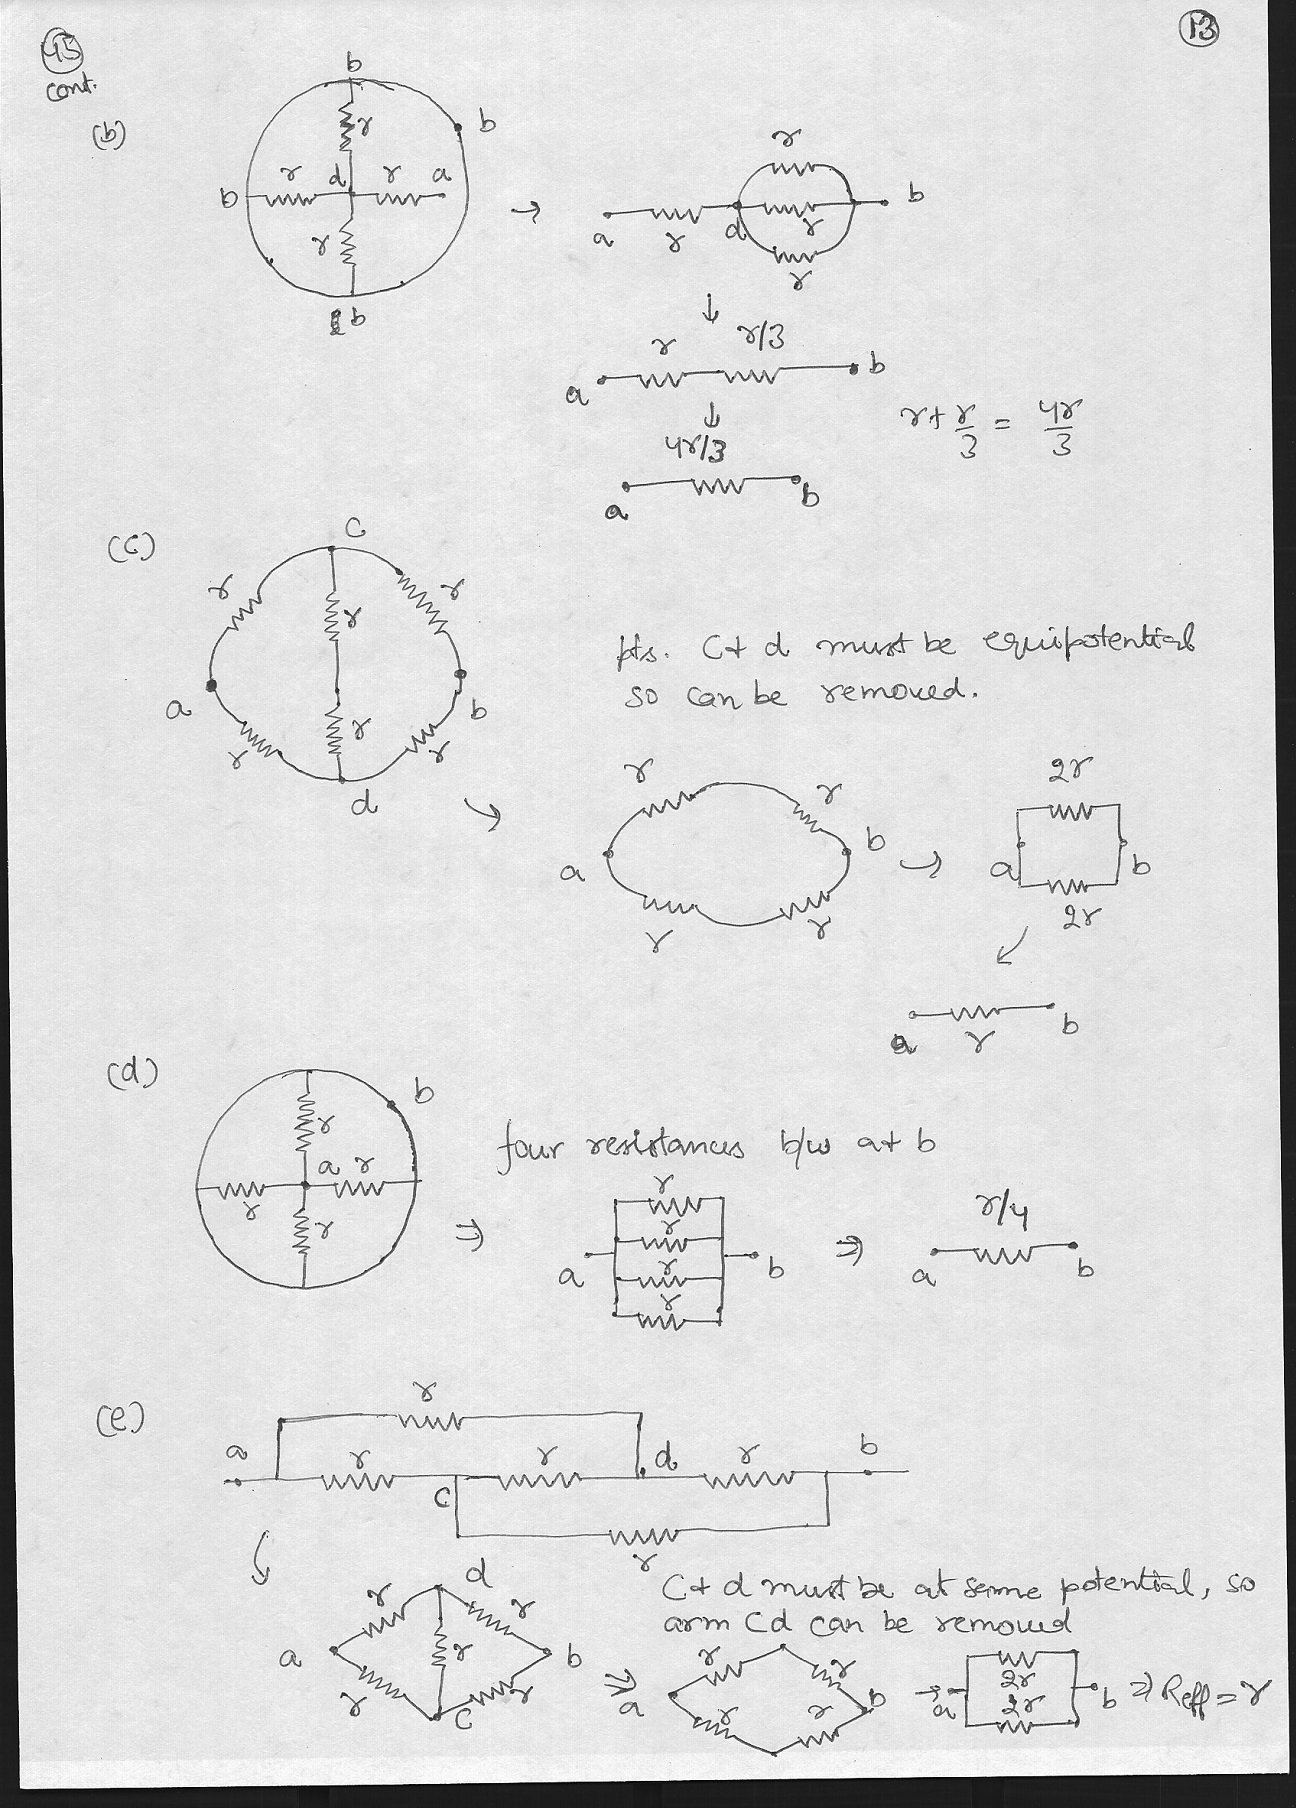 45
13
cont.
(b)
b
b
r
b r d r a
r
b
r
a r d r b
r
r r/3
a b
r + r/3 = 4r/3
4r/3
a b
(c)
c
r r r
a b
r r r
d
pts. C & d must be equipotential
so can be removed.
r r
a b
r r
2r
a b
2r
a r b
(d)
b
r
a r
r r
four resistances b/w a & b
r
r
r
r
a b
r/4
a b
(e)
r
a r r d r b
c
r
d
r r
a r b
r r
c
C & d must be at same potential, so
arm Cd can be removed
r r
a b
r r
2r
a b
2r
⇒ Reff = r